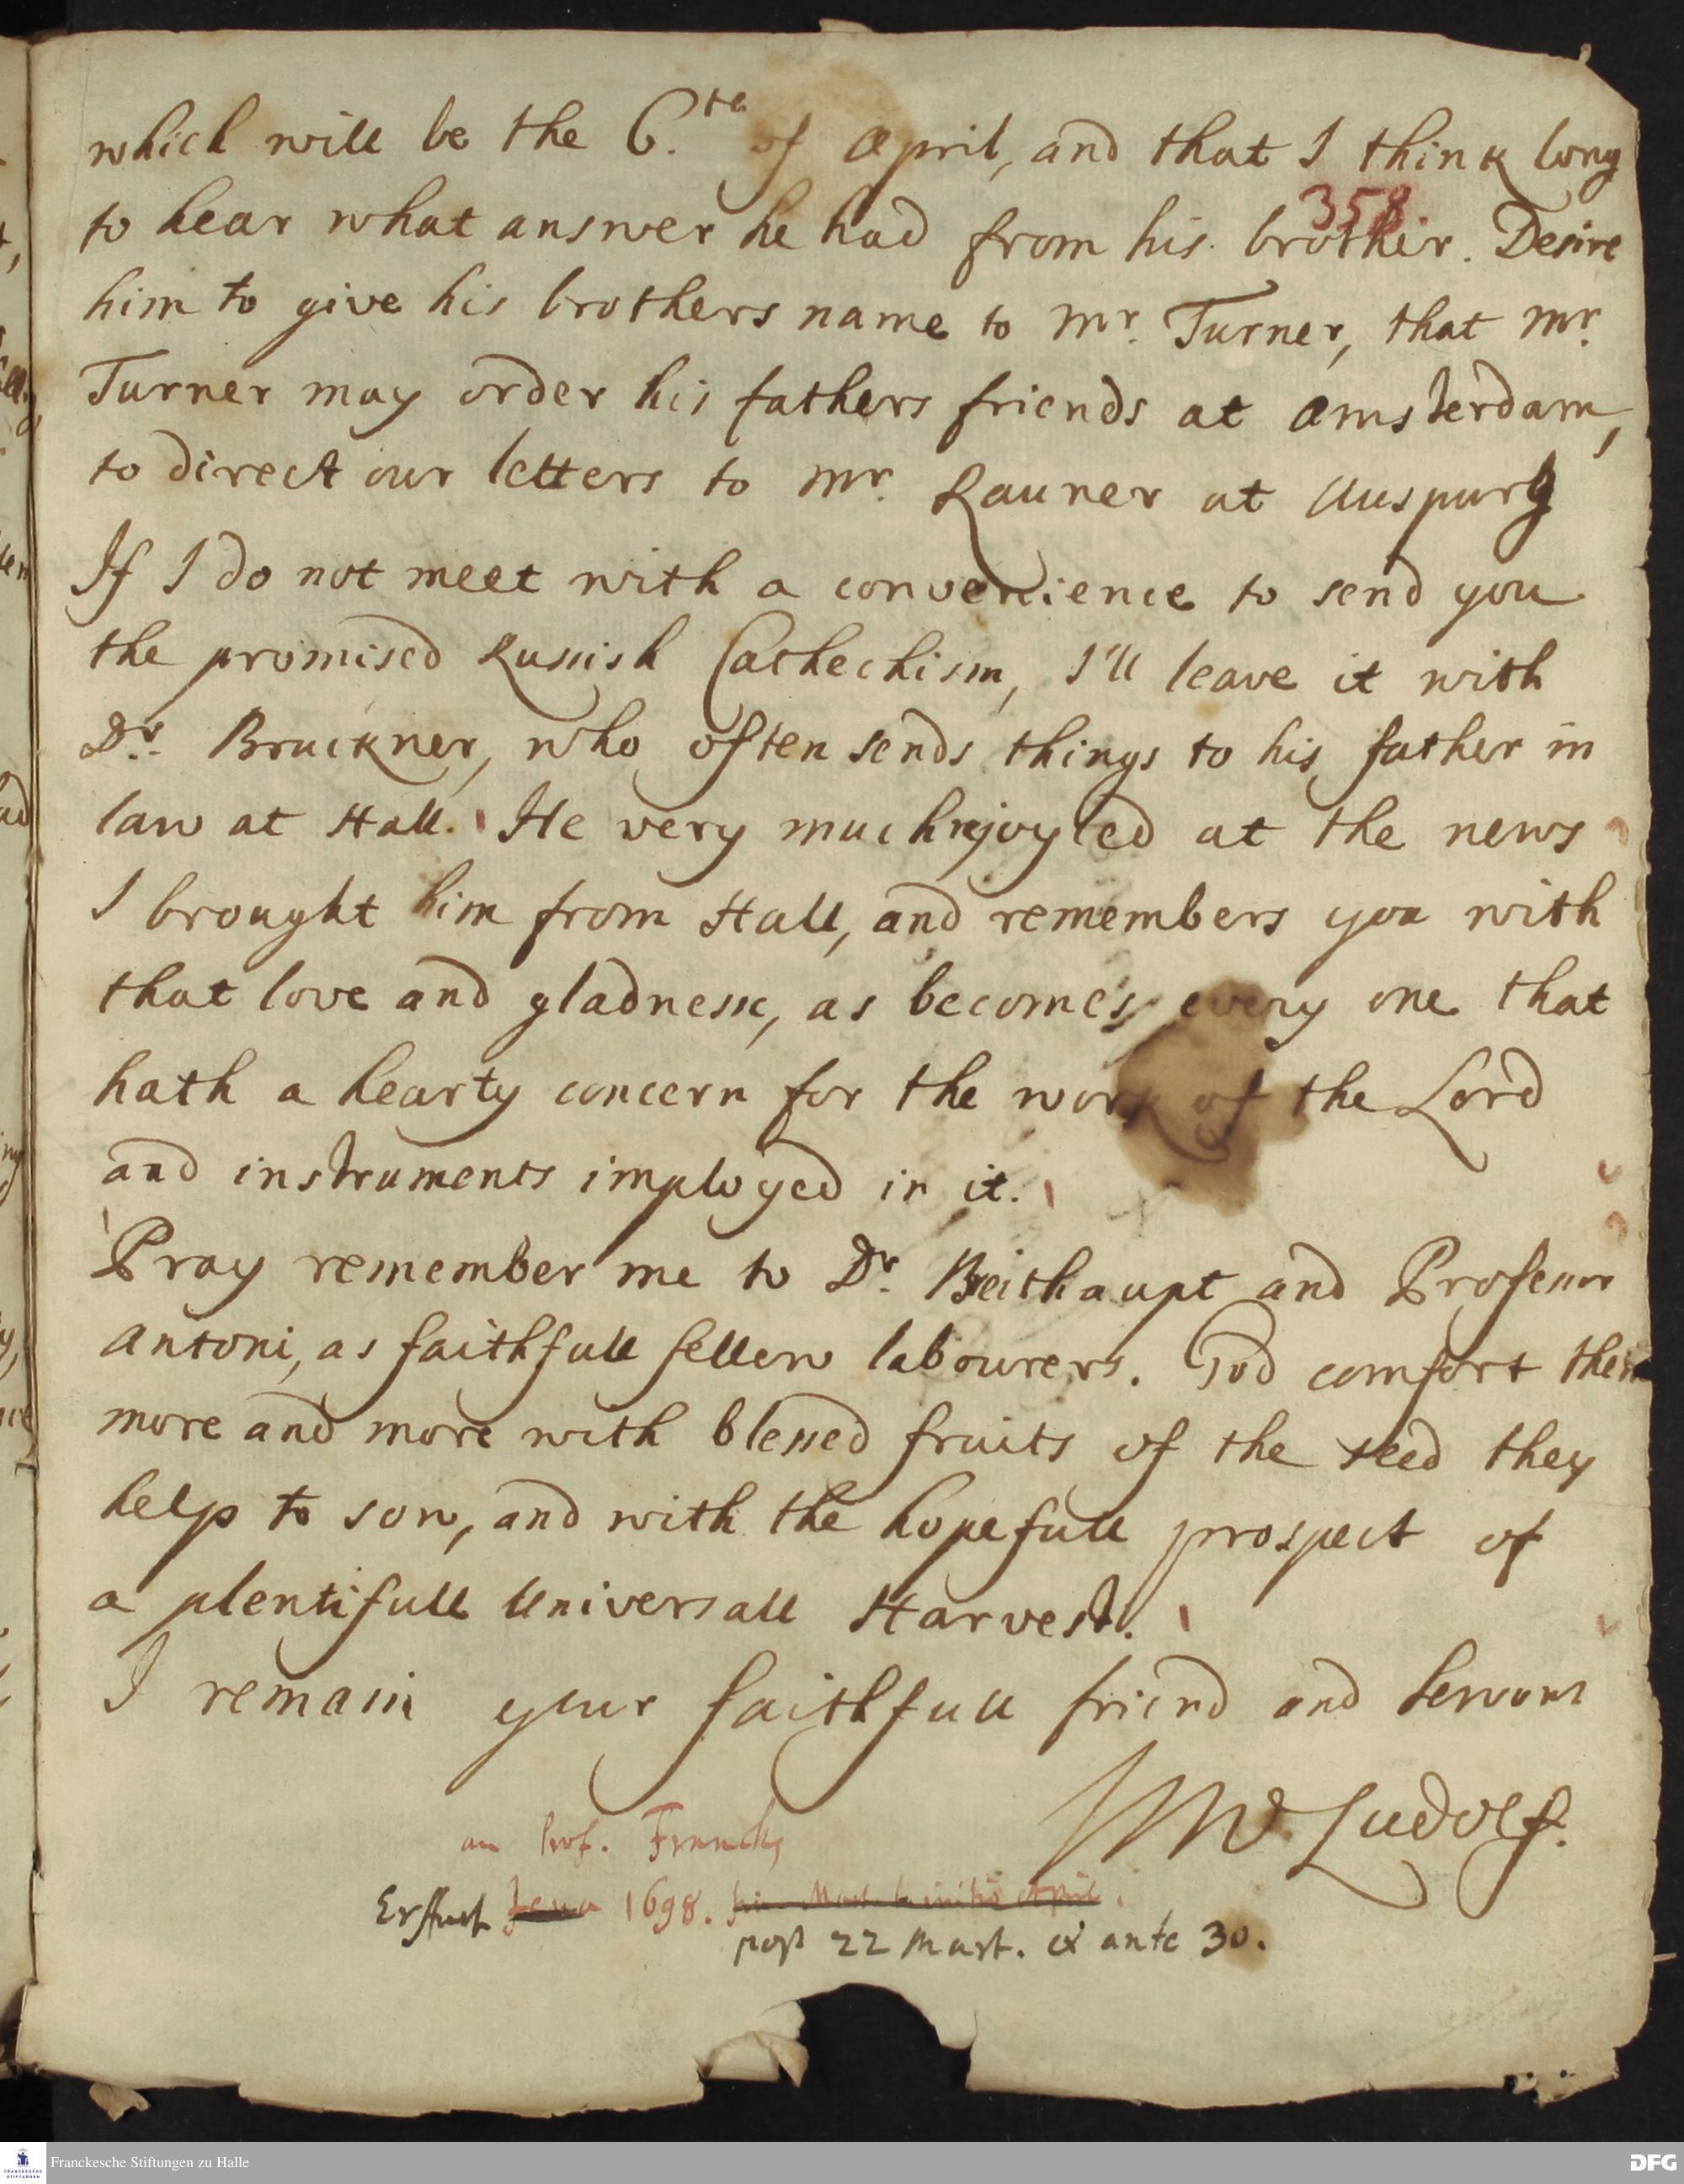 which will be the 6.te of April, and that I think long
358.
to hear what answer he had from his brother. Desire
him to give his brothers name to Mr. Turner, that Mr.
Turner may order his fathers friends at Amsterdam,
to direct our letters to Mr. Rauner at Auspurg
If I do not meet with a convenience to send you
the promised Russish Cathechism, I'll leave it with
Dr. Bruckner, who often sends things to his father in
law at Hall. He very much rejoyced at the news
I brought him from Hall, and remembers you with
that love and gladnesse, as becomes every one that
hath a hearty concern for the work of the Lord
and instruments imployed in it.
Pray remember me to Dr. Breithaupt and Professor
Antoni, as faithfull fellow labourers. God comfort them
more and more with blessed fruits of the seed they
help to sow, and with the hopefull prospect of
a plentifull Universall Harvest.
I remain your faithfull friend and servant
HWLudolf.
an Prof. Francke
Erffurt Jena 1698. fin. Mart. initio April.
post 22 Mart. et ante 30.
Franckesche Stiftungen zu Halle
DFG